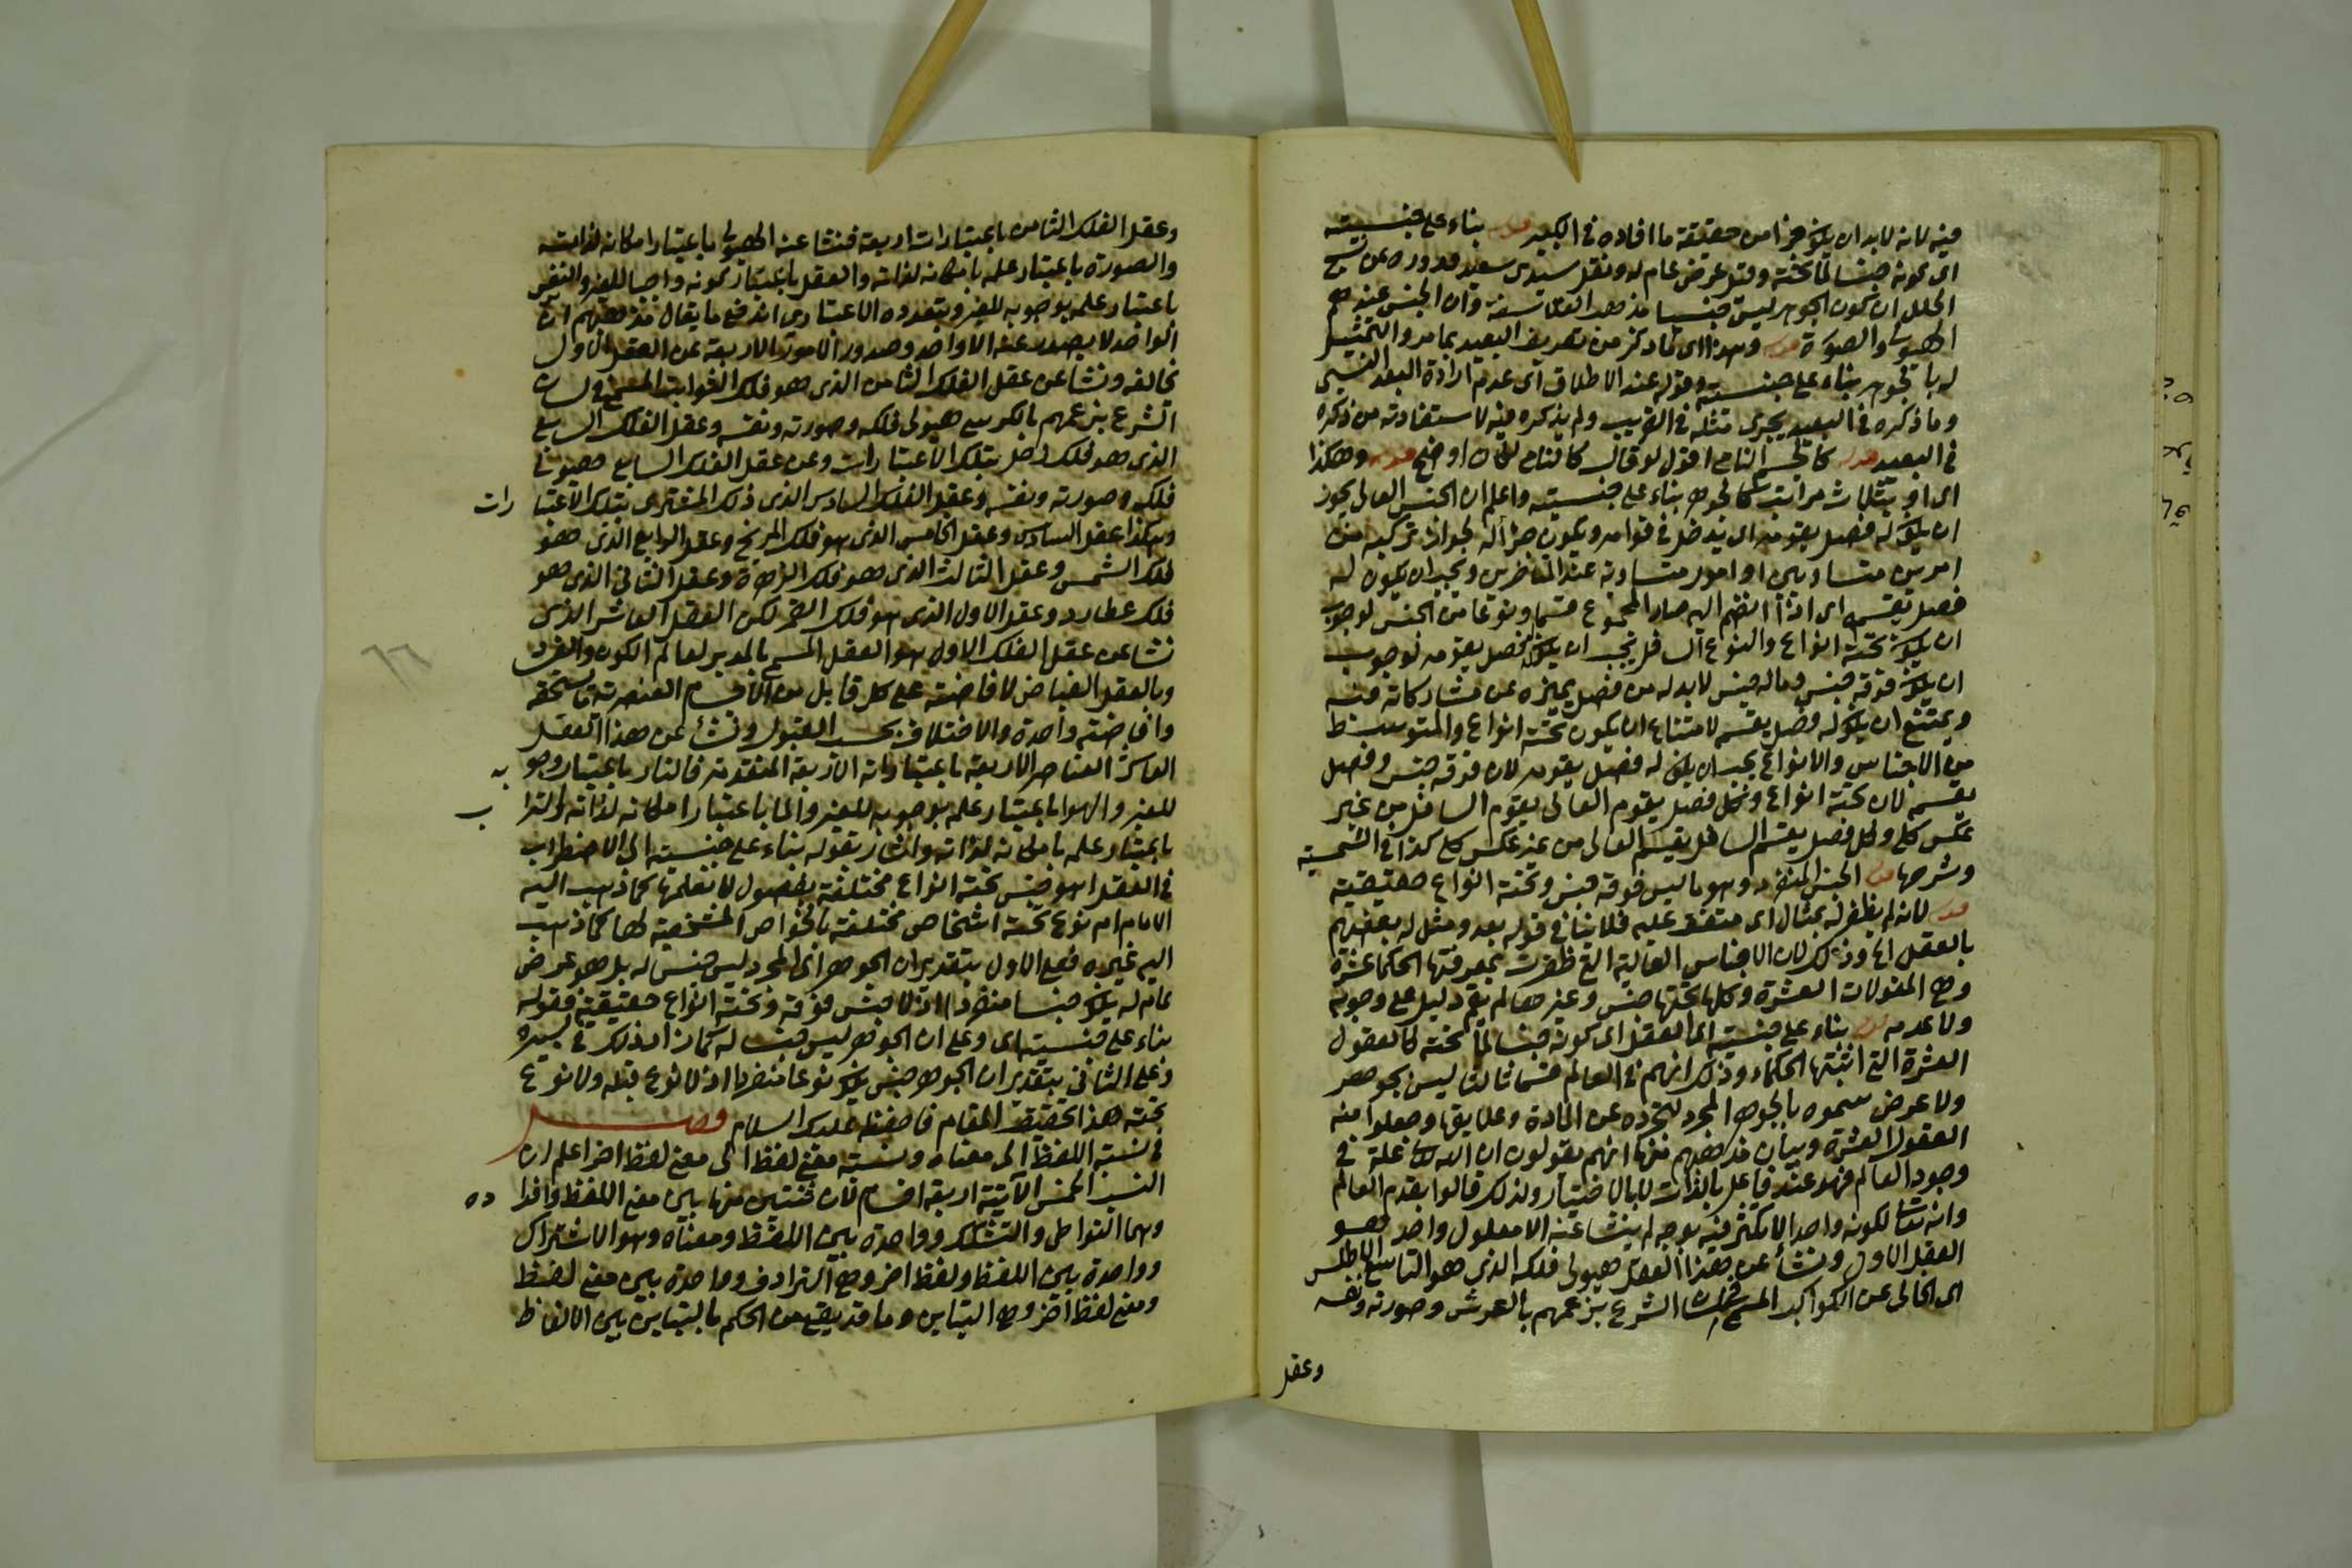 فيه لانه لابد ان يكون جزا من حقيقة ما افاده في الكبير قوله بناء على جنسيته
اى كونه جنسا لما تحته وقيل عرض عام له ونقل سيدى سعيد قدوره عن
ان كون الجوهر ليس جنسا مذهب الفلاسفة وان الجنس عندهم
الهيولى والصورة قوله وهذا اى ما ذكر من تعريف البعيد بما مر والتمثيل
له بالجوهر بناء على جنسيته وقوله عند الاطلاق اى عدم ارادة البعد النسبى
وما ذكره في البعيد يجرى مثله في القريب ولم يذكره فيه لاستفادته من ذكره
في البعيد قوله كالجسم النامى اقول لو قال كالنامى لكان اوضح قوله وهكذا
اى او بثلاث مراتب كالجوهر بناء على جنسيته واعلم ان الجنس العالى يجوز
ان يكون له فصل يقومه اى يدخل في قوامه ويكون جزأ له لجواز تركبه من
امرين متساويين او امور متساوية عند المتأخرين ويجب ان يكون له
فصل يقسمه اى اذا انضم اليه صار المجموع قسما ونوعا من الجنس لوجوب
ان يكون تحته انواع والنوع السافل يجب ان يكون له فصل يقومه لوجوب
ان يكون فوقه جنس وماله جنس لابد له من فصل يميزه عن مشاركاته فيه
ويمتنع ان يكون له فصل يقسمه لامتناع ان يكون تحته انواع والمتوسط
من الاجناس والانواع يجب ان يكون له فصل يقومه لان فوقه جنس وفصل
يقسمه لان تحته انواع وكل فصل يقوم العالى يقوم السافل من غير
عكس كلى وكل فصل يقسم السافل يقسم العالى من غير عكس كلى كذا في الشمسية
وشرحها قوله الجنس المنفرد وهو ما ليس فوقه جنس وتحته انواع حقيقية
قوله لانه لم يظفر له بمثال اى متفق عليه فلا ينافي قوله بعد ومثل له بعضهم
بالعقل الخ وذلك لان الاجناس العالية التى ظفرت بمعرفتها الحكما عشرة
وهى المقولات العشرة وكلها تحتها جنس وغيرها لم يقم دليل على وجوده
ولا عدمه قوله بناء على جنسيته اى العقل اى كونه جنسا لما تحته كالعقول
العشرة التى اثبتها الحكماء وذلك انهم في العالم قسما ثالثا ليس بجوهر
ولا عرض سموه بالجوهر المجرد لتجرده عن المادة وعلايقها وجعلوا منه
العقول العشرة وبيان مذهبهم فيها انهم يقولون ان الله تعالى علة في
وجود العالم فهو عندهم فاعل بالذات لا بالاختيار ولذلك قالوا بقدم العالم
وانه تعالى لكونه واحدا لا تكثر فيه بوجه لم ينشا عنه الا معلول واحد وهو
العقل الاول ونشأ عن هذا العقل هيولى فلكه الذى هو التاسع الاطلس
اى الخالى عن الكواكب المسمى في لسان الشرع بزعمهم بالعرش وصورته ونفسه
وعقل
وعقل الفلك الثامن باعتبارات اربعة فنشا عنه الهيولى باعتبار امكانه لذاته
والصورة باعتبار علمه بامكانه لذاته والعقل باعتبار كونه واجبا للغير والنفس
باعتبار علمه بوجوبه للغير وبتعدده الاعتبارى اندفع ما يقال مذهبهم ان
الواحد لا يصدر عنه الا واحد وصدور الامور الاربعة عن العقل الاول
يخالفه ونشا عن عقل الفلك الثامن الذى هو فلك الثوابت المسمى في لسان
الشرع بزعمهم بالكرسى هيولى فلكه وصورته ونفسه وعقل الفلك السابع
الذى هو فلك زحل بتلك الاعتبارات وعن عقل الفلك السابع هيولى
فلكه وصورته ونفسه وعقل الفلك السادس الذى فلك المشترى بتلك الاعتبا رات
وهكذا عقل السادس وعقل الخامس الذى هو فلك المريخ وعقل الرابع الذى هو
فلك الشمس وعقل الثالث الذى هو فلك الزهرة وعقل الثانى الذى هو
فلك عطارد وعقل الاول الذى هو فلك القمر لكن العقل العاشر الذى
نشا عن عقل الفلك الاول هو العقل المسمى بالمدبر لعالم الكون والفساد
وبالعقل الفياض لافاضته على كل قابل من الاجسام العنصرية ما يستحقه
وافاضته واحدة والاختلاف بحسب القبول ونشأ عن هذا العقل
العاشر العناصر الاربعة باعتباراته الاربعة المتقدمة فالنار باعتبار وجو به
للغير والهوا باعتبار علمه بوجوبه للغير والما باعتبار امكانه لذاته والترا ب
باعتبار علمه بامكانه لذاته واشار بقوله بناء على جنسيته الى الاضطراب
في العقل اهو جنس تحته انواع مختلفة بفصول لا نعلمها كما ذهب اليه
الامام ام نوع تحته اشخاص مختلفة بالخواص المشخصة لها كما ذهب
اليه غيره فعلى الاول بتقدير ان الجوهر اى المجرد ليس جنس له بل هو عرض
عام له يكون جنسا منفردا اذ لا جنس فوقه وتحته انواع حقيقية فقوله
بناء على جنسيته اى وعلى ان الجوهر ليس جنسا له كما زاد ذلك في كبيره
وعلى الثانى بتقدير ان الجوهر جنس يكون نوعا منفردا اذ لا نوع قبله ولا نوع
تحته هذا تحقيق المقام فاحفظه عليك السلام فصل
في نسبة اللفظ الى معناه ونسبة معنى لفظ الى معنى لفظ اخر اعلم ان
النسب الخمس الآتية اربعة اقسام لان ثنتين منها بين معنى اللفظ وافرا ده
وهما التواطى والتشكك وواحدة بين اللفظ ومعناه وهو الاشتراك
وواحدة بين اللفظ ولفظ اخر وهى الترادف وواحدة بين معنى لفظ
ومعنى لفظ آخر وهى التباين وما قد يقع من الحكم بالتباين بين الالفاظ